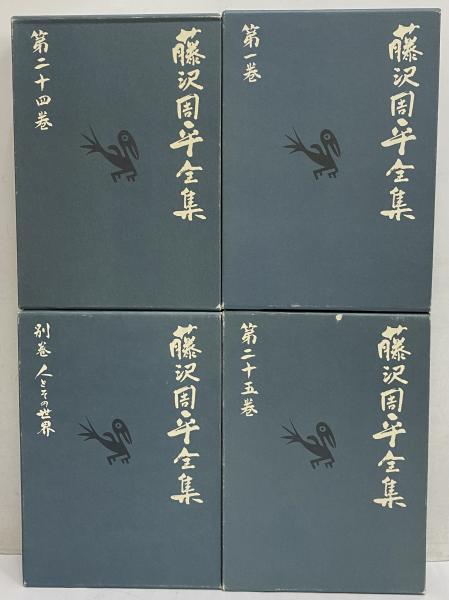 藤沢周平全集
第二十四巻
藤沢周平全集
第一巻
藤沢周平全集
別巻 人とその世界
藤沢周平全集
第二十五巻